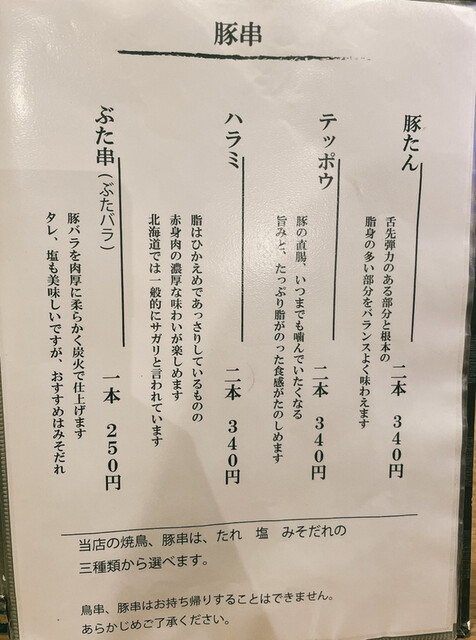 豚串
豚たん
二本 340円
舌先弾力のある部分と根本の
脂身の多い部分をバランスよく味わえます
テッポウ
二本 340円
豚の直腸、いつまでも噛んでいたくなる
旨みと、たっぷり脂がのった食感がたのしめます
ハラミ
二本 340円
脂はひかえめであっさりしているものの
赤身肉の濃厚な味わいが楽しめます
北海道では一般的にサガリと言われています
ぶた串(ぶたバラ)
一本 250円
豚バラを肉厚に柔らかく炭火で仕上げます
タレ、塩も美味しいですが、おすすめはみそだれ
当店の焼鳥、豚串は、たれ 塩 みそだれの
三種類から選べます。
鳥串、豚串はお持ち帰りすることはできません。
あらかじめご了承ください。